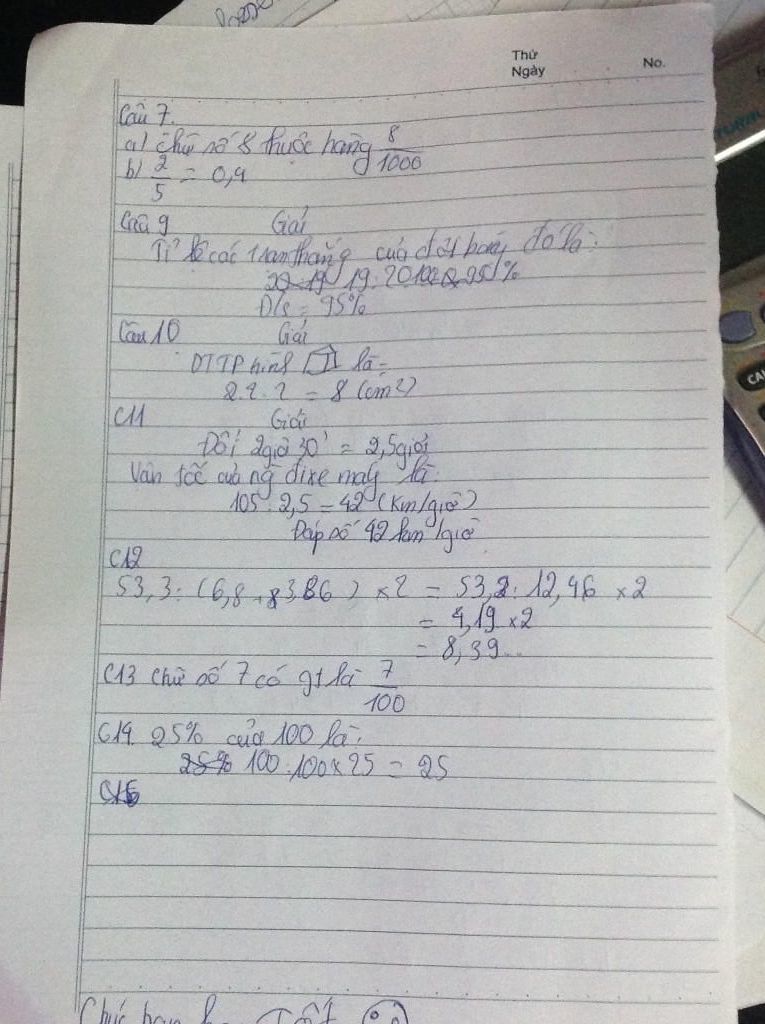 Thứ
Ngày No.
Câu 7.
a) chữ số 8 thuộc hàng 8/1000
b) 2/5 = 0,4
Câu 9 Giải
Tỉ lệ các trận thắng của đội bóng đó là:
19:20100 95%
Đ/s = 95%
Câu 10 Giải
DTTP hình là:
2.2.2 = 8 (cm²)
C11 Giải
Đổi 2giờ 30' = 2,5giờ
Vân tốc của ng đi xe máy là:
105 : 2,5 = 42 (Km/giờ)
Đáp số 42 km/giờ
C12
53,3 : (6,8 + 3,86) x 2 = 53,2 : 12,46 x 2
= 4,19 x 2
= 8,39...
C13 Chữ số 7 có gt là 7/100
C14. 25% của 100 là:
100 : 100 x 25 = 25
Chúc bạn Tốt